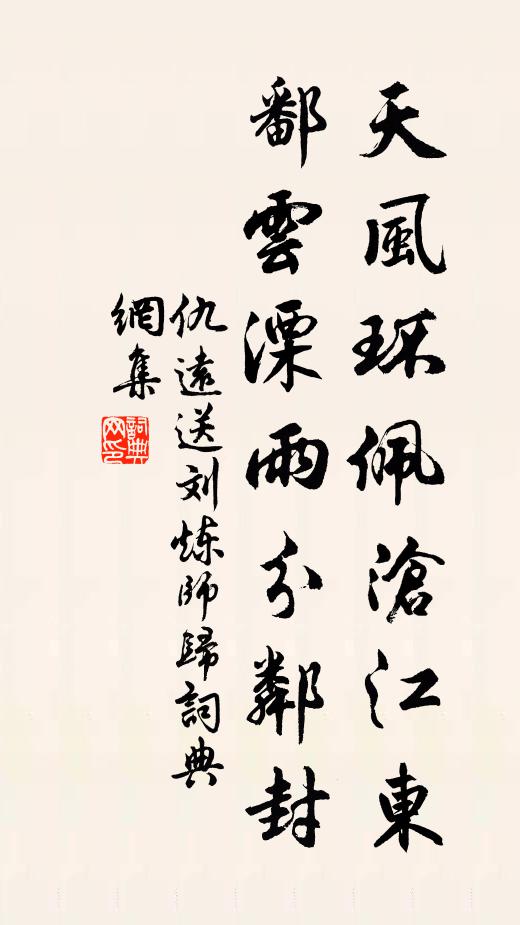 天風环佩滄江東
鄱雲溧雨分鄰封
仇遠送刘炼師歸詞典
網集
詞典网印